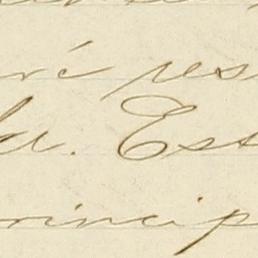 ré res
da. Est
princip